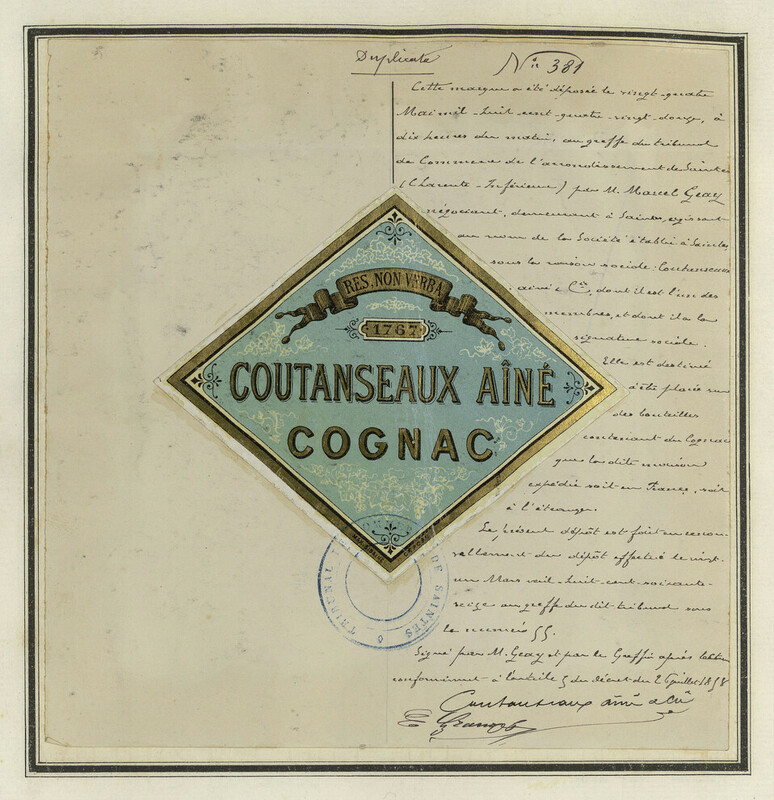 Duplicata
No 381
Cette marque a été déposée le vingt-quatre
Mai mil-huit-cent-quatre-vingt-douze, à
dix heures du matin, au greffe du tribunal
de Commerce de l'arrondissement de Saintes
(Charente-Inférieure) par M. Marcel Geay
négociant, demeurant à Saintes, agissant
au nom de la Société établie à Saintes
sous la raison sociale: Coutanseaux
aîné & Cie, dont il est l'un des
membres, et dont il a la
signature sociale.
Elle est destinée
à être placée sur
des bouteilles
contenant du Cognac
que la dite maison
expédie soit en France, soit
à l'étranger.
Le présent dépôt est fait en renou-
vellement du dépôt effectué le vingt-
un Mars mil-huit-cent-soixante-
seize au greffe du dit tribunal sous
le numéro 55.
Signé par M. Geay et par le Greffier après lecture
conformément à l'article 5 du décret du 26 juillet 1858
Coutanseaux aîné & Cie
RES, NON VERBA
1767
COUTANSEAUX AÎNÉ
COGNAC
TRIBUNAL DE SAINTES